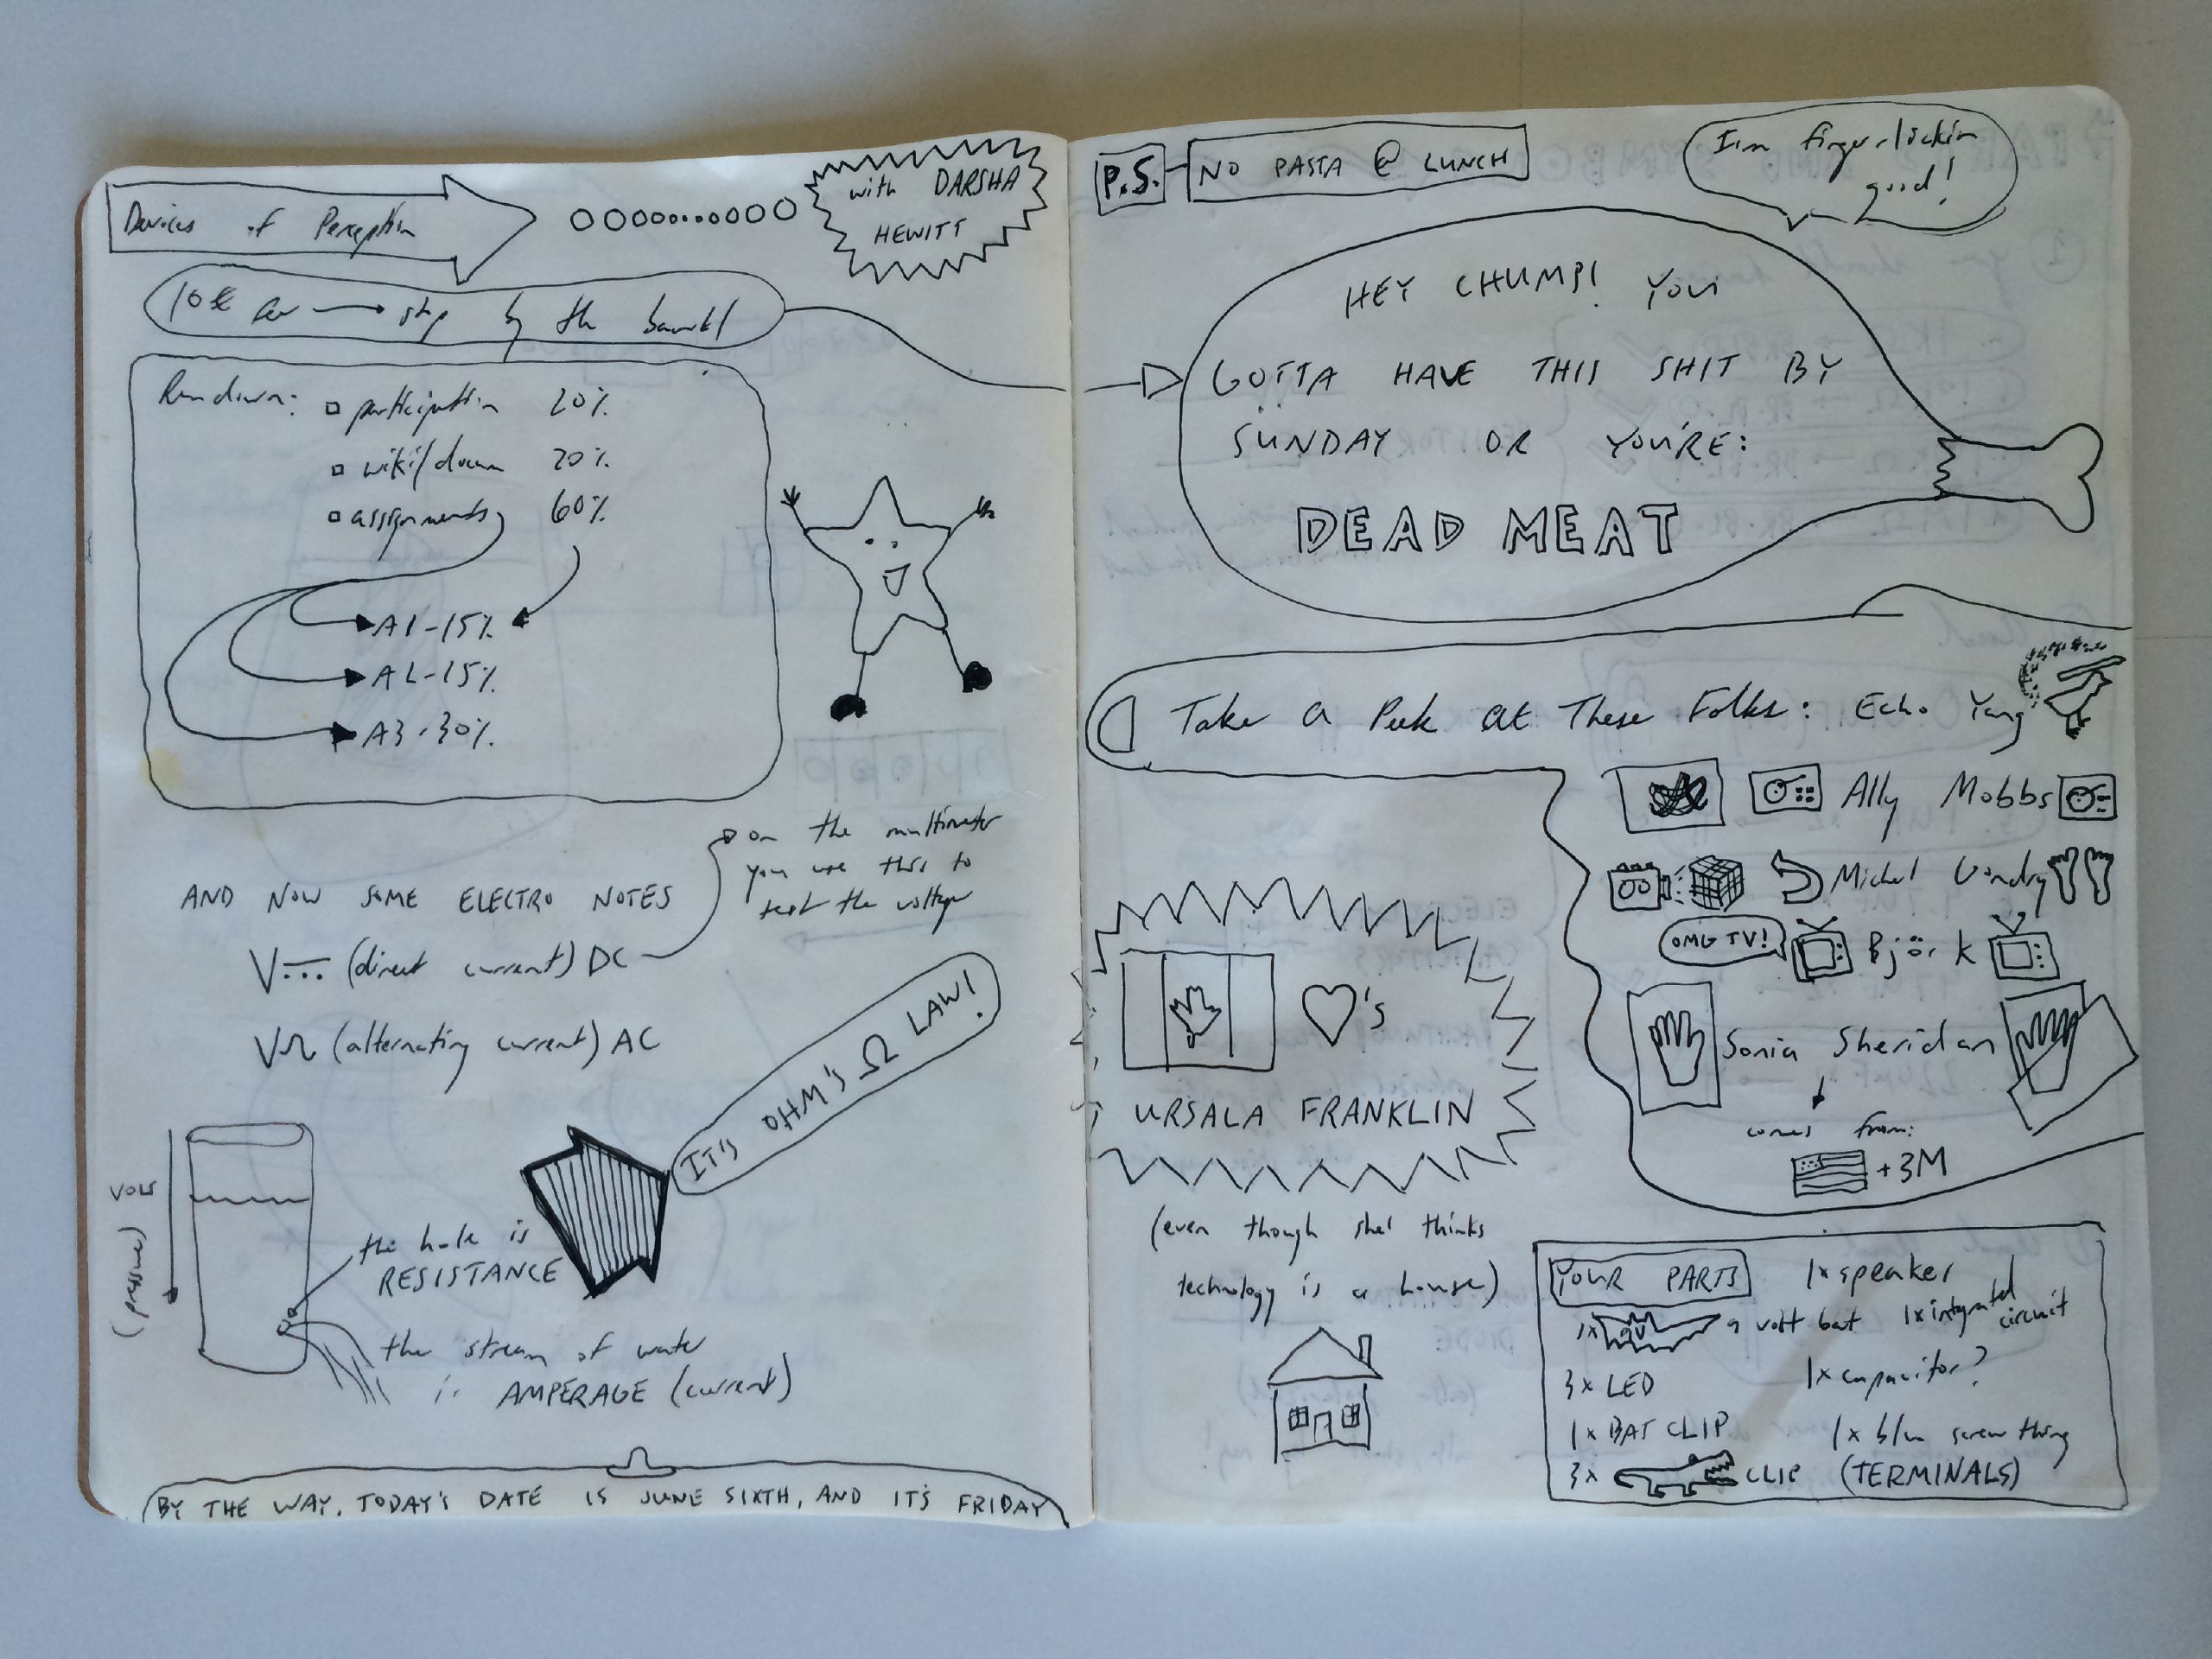 Devices of Perception
with DARSHA
HEWITT
10€ fee → stop by the bank!
Rundown: participation 20%
wiki/docum 20%
assignments 60%
A1-15%
A2-15%
A3-30%
on the multimeter
you use this to
test the voltage
AND NOW SOME ELECTRO NOTES
V (direct current) DC
V (alternating current) AC
IT'S OHM'S Ω LAW!
VOLTS
(pressure)
the hole is
RESISTANCE
the stream of water
is AMPERAGE (current)
BY THE WAY, TODAY'S DATE IS JUNE SIXTH, AND IT'S FRIDAY
P.S. NO PASTA @ LUNCH
I'm finger-lickin
good!
HEY CHUMP! YOU
GOTTA HAVE THIS SHIT BY
SUNDAY OR YOU'RE:
DEAD MEAT
Take a Peek at These Folks: Echo Yang
Ally Mobbs
Michel Gondry
OMG TV! Björk
Sonia Sheridan
comes from:
+3M
♡'s
URSALA FRANKLIN
(even though she thinks
technology is a house)
YOUR PARTS
1x 9V 9 volt bat
3x LED
1x BAT CLIP
3x CLIP
1x speaker
1x integrated
circuit
1x capacitor?
1x blue screw thing
(TERMINALS)